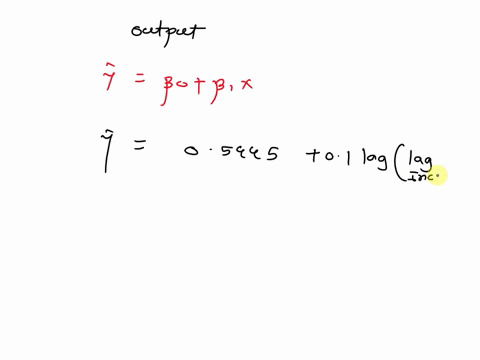 output
ŷ = β0 + β1 x
ŷ = 0.5445 + 0.1 lag (lag
inc.